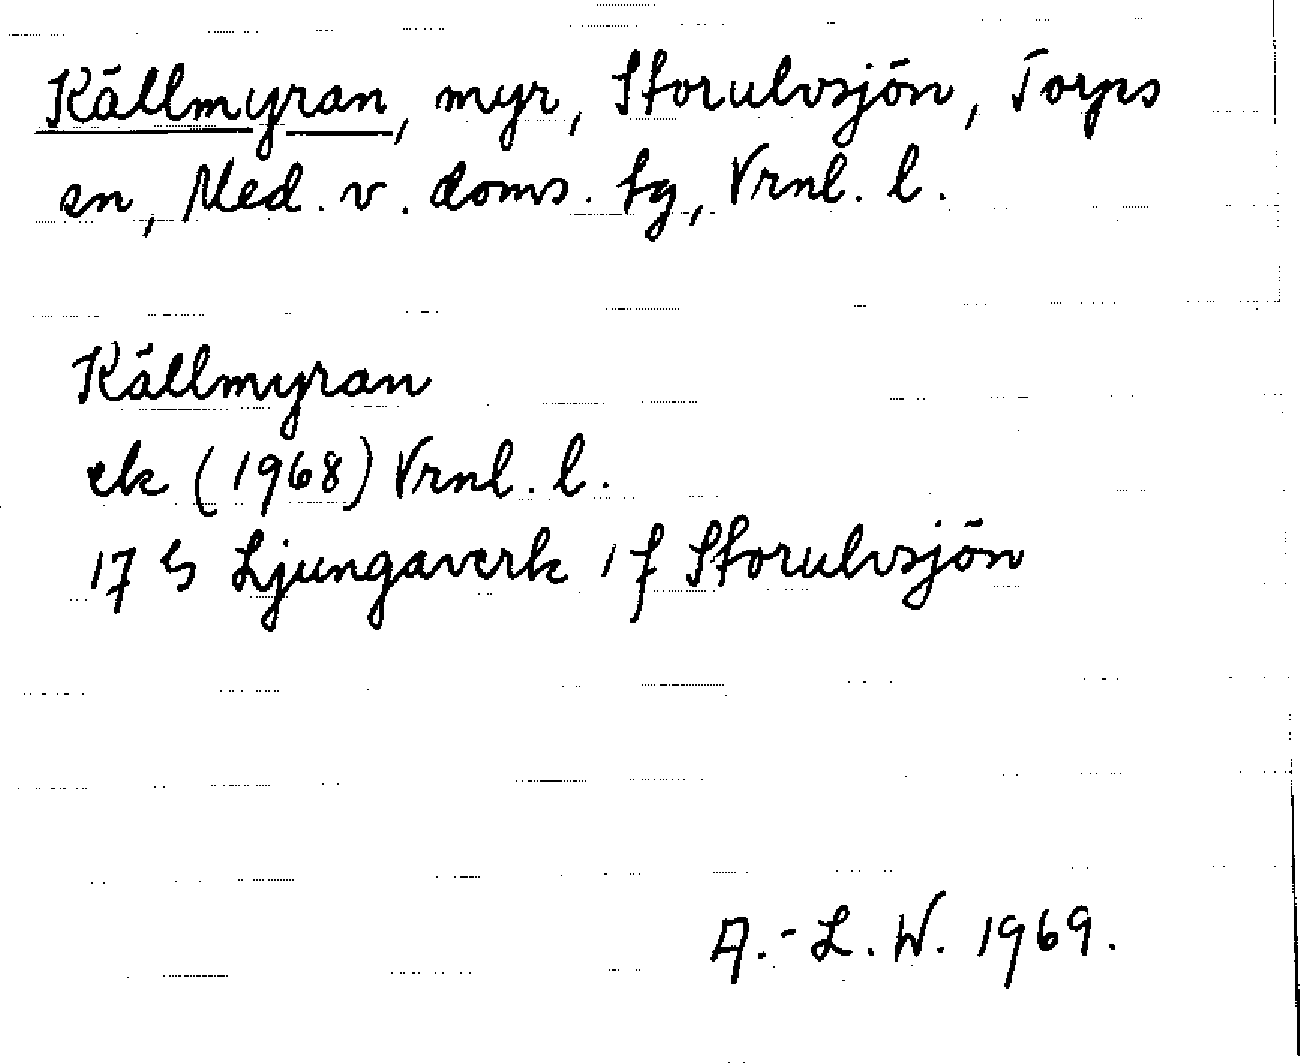 Källmyran, myr, Storulvsjön, Torps
sn, Med. v. doms. tg, Vrnl. l.
Källmyran
ek (1968) Vrnl. l.
17 G Ljungaverk 1 f Storulvsjön
A.-L. W. 1969.